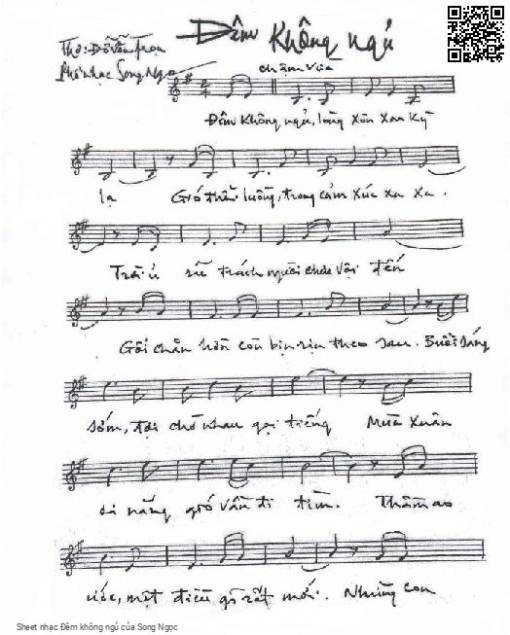 Đêm Không ngủ
Thơ: Đỗ Văn
Phổ nhạc Song Ngọc
chậm vừa
Đêm không ngủ, lòng xôn xao kỳ
lạ Gió luồng, trong cảm xúc xa xa.
Trời ủ rũ trách người chưa vội đến
Gối chăn hờn còn bịn rịn theo sau. Buổi sáng
sớm, đợi chờ nhau gọi tiếng Mùa Xuân
nắng gió vẫn đi tìm. Thầm ao
ước, một điều gì rất mới. Những con
Sheet nhạc Đêm không ngủ của Song Ngọc